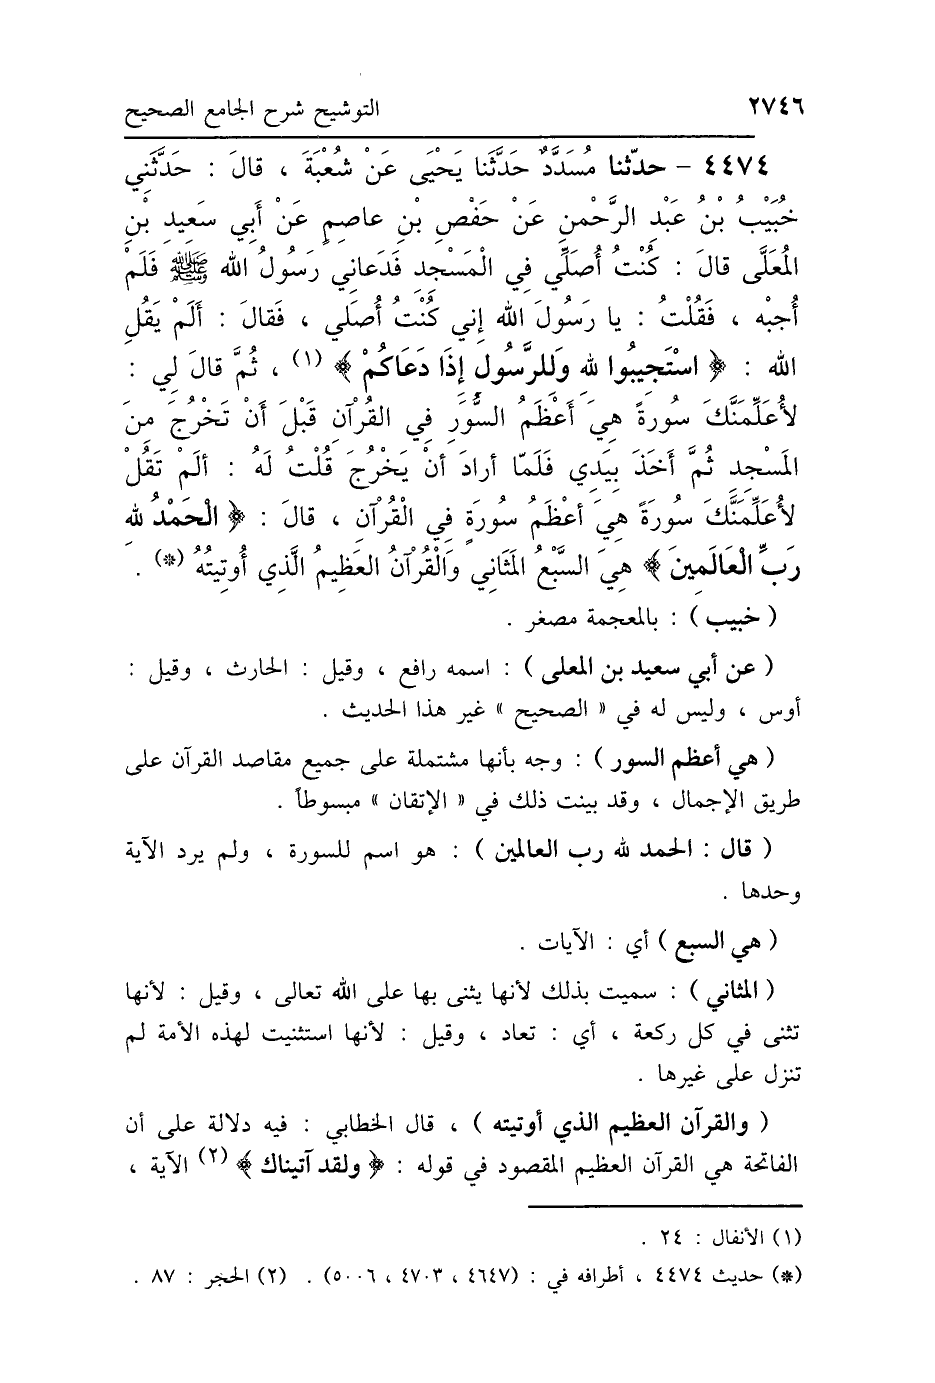 ٢٧٤٦ التوشيح شرح الجامع الصحيح
٤٤٧٤ - حدّثنا مُسَدَّدٌ حَدَّثَنا يَحْيَى عَنْ شُعْبَةَ ، قالَ : حَدَّثَنِي
خُبَيْبُ بْنُ عَبْدِ الرَّحْمنِ عَنْ حَفْصِ بْنِ عاصِمٍ عَنْ أَبِي سَعِيدِ بْنِ
المُعَلَّى قالَ : كُنْتُ أُصَلِّي فِي الْمَسْجِدِ فَدَعانِي رَسُولُ الله ﷺ فَلَمْ
أُجِبْه ، فَقُلْتُ : يا رَسُولَ الله إني كُنْتُ أُصَلي ، فَقالَ : أَلَمْ يَقُلِ
الله : ﴿ اسْتَجِيبُوا لله وَللرَّسُولِ إِذَا دَعَاكُمْ ﴾ (١) ، ثُمَّ قالَ لِي :
لأُعَلِّمَنَّكَ سُورَةً هِيَ أَعْظَمُ السُّوَرِ فِي القُرْآنِ قَبْلَ أَنْ تَخْرُجَ مِنَ
المَسْجِد ثُمَّ أَخَذَ بِيَدِي فَلَمّا أرادَ أنْ يَخْرُجَ قُلْتُ لَهُ : ألَمْ تَقُلْ
لأُعَلِّمَنَّكَ سُورَةً هِيَ أعْظَمُ سُورَةٍ فِي الْقُرْآنِ ، قالَ : ﴿ الْحَمْدُ لله
رَبِّ الْعَالَمِينَ ﴾ هِيَ السَّبْعُ المَثَانِي وَالْقُرْآنُ العَظِيمُ الَّذِي أُوتِيتُهُ (*) .
( خبيب ) : بالمعجمة مصغر .
( عن أبي سعيد بن المعلى ) : اسمه رافع ، وقيل : الحارث ، وقيل :
أوس ، وليس له في « الصحيح » غير هذا الحديث .
( هي أعظم السور ) : وجه بأنها مشتملة على جميع مقاصد القرآن على
طريق الإجمال ، وقد بينت ذلك في « الإتقان » مبسوطاً .
( قال : الحمد لله رب العالمين ) : هو اسم للسورة ، ولم يرد الآية
وحدها .
( هي السبع ) أي : الآيات .
( المثاني ) : سميت بذلك لأنها يثنى بها على الله تعالى ، وقيل : لأنها
تثنى في كل ركعة ، أي : تعاد ، وقيل : لأنها استثنيت لهذه الأمة لم
تنزل على غيرها .
( والقرآن العظيم الذي أوتيته ) ، قال الخطابي : فيه دلالة على أن
الفاتحة هي القرآن العظيم المقصود في قوله : ﴿ ولقد آتيناك ﴾ (٢) الآية ،
(١) الأنفال : ٢٤ .
(*) حديث ٤٤٧٤ ، أطرافه في : (٤٦٤٧ ، ٤٧٠٣ ، ٥٠٠٦) . (٢) الحجر : ٨٧ .